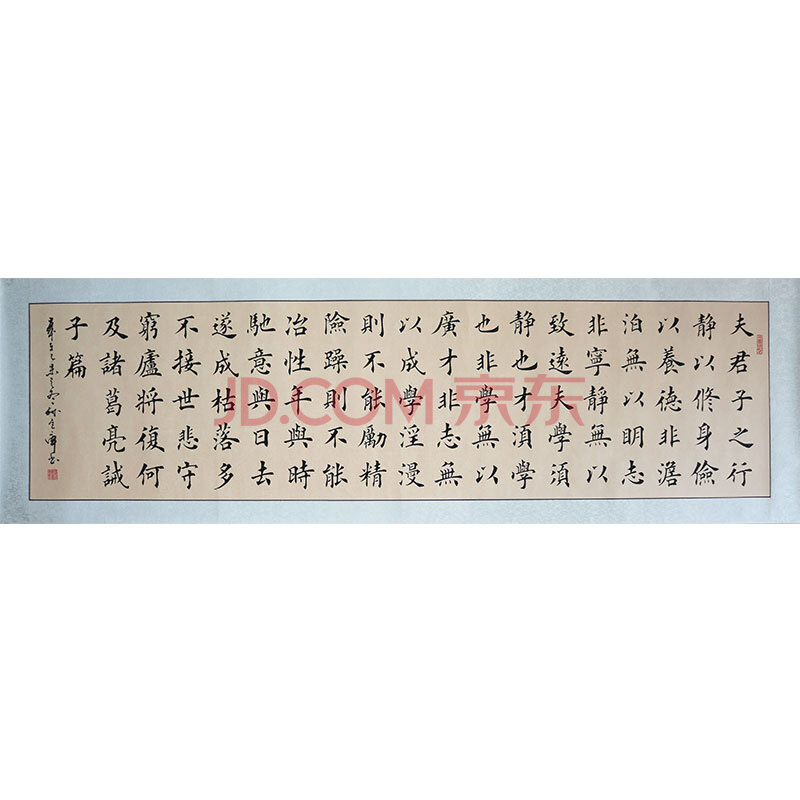 夫君子之行
静以修身儉
以養德非澹
泊無以明志
非寧静無以
致遠夫學須
静也才須學
也非學無以
廣才非志無
以成學淫漫
則不能勵精
險躁則不能
冶性年與時
馳意與日去
遂成枯落多
不接世悲守
窮廬將復何
及諸葛亮誡
子篇
JD.COM 京东